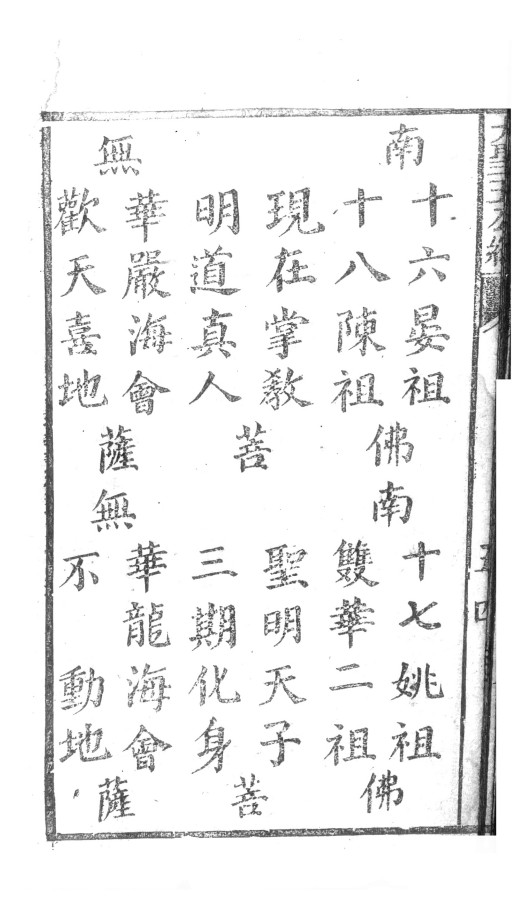 十六晏祖 十七姚祖
南 佛 南 佛
十八陳祖 雙華二祖
現在掌教 聖明天子
菩 菩
明道真人 三期化身
華嚴海會 華龍海會
無 薩 無 薩
歡天喜地 不動地